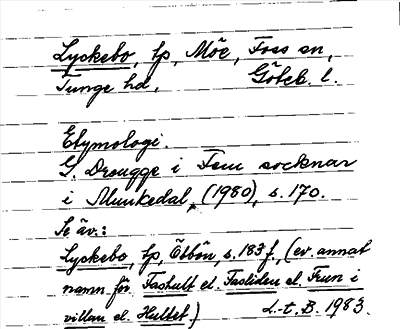 Lyckebo, tp, Möe, Foss sn,
Tunge hd, Göteb. l.
Etymologi.
G. Drougge i Fem socknar
i Munkedal, (1980), s. 170.
Se äv.:
Lyckebo, tp, Öbbön, s. 183 f., (ev. annat
namn för Fashult el. Fasliden el. Frun i
villan el. Hultet.) L-t. B. 1983.